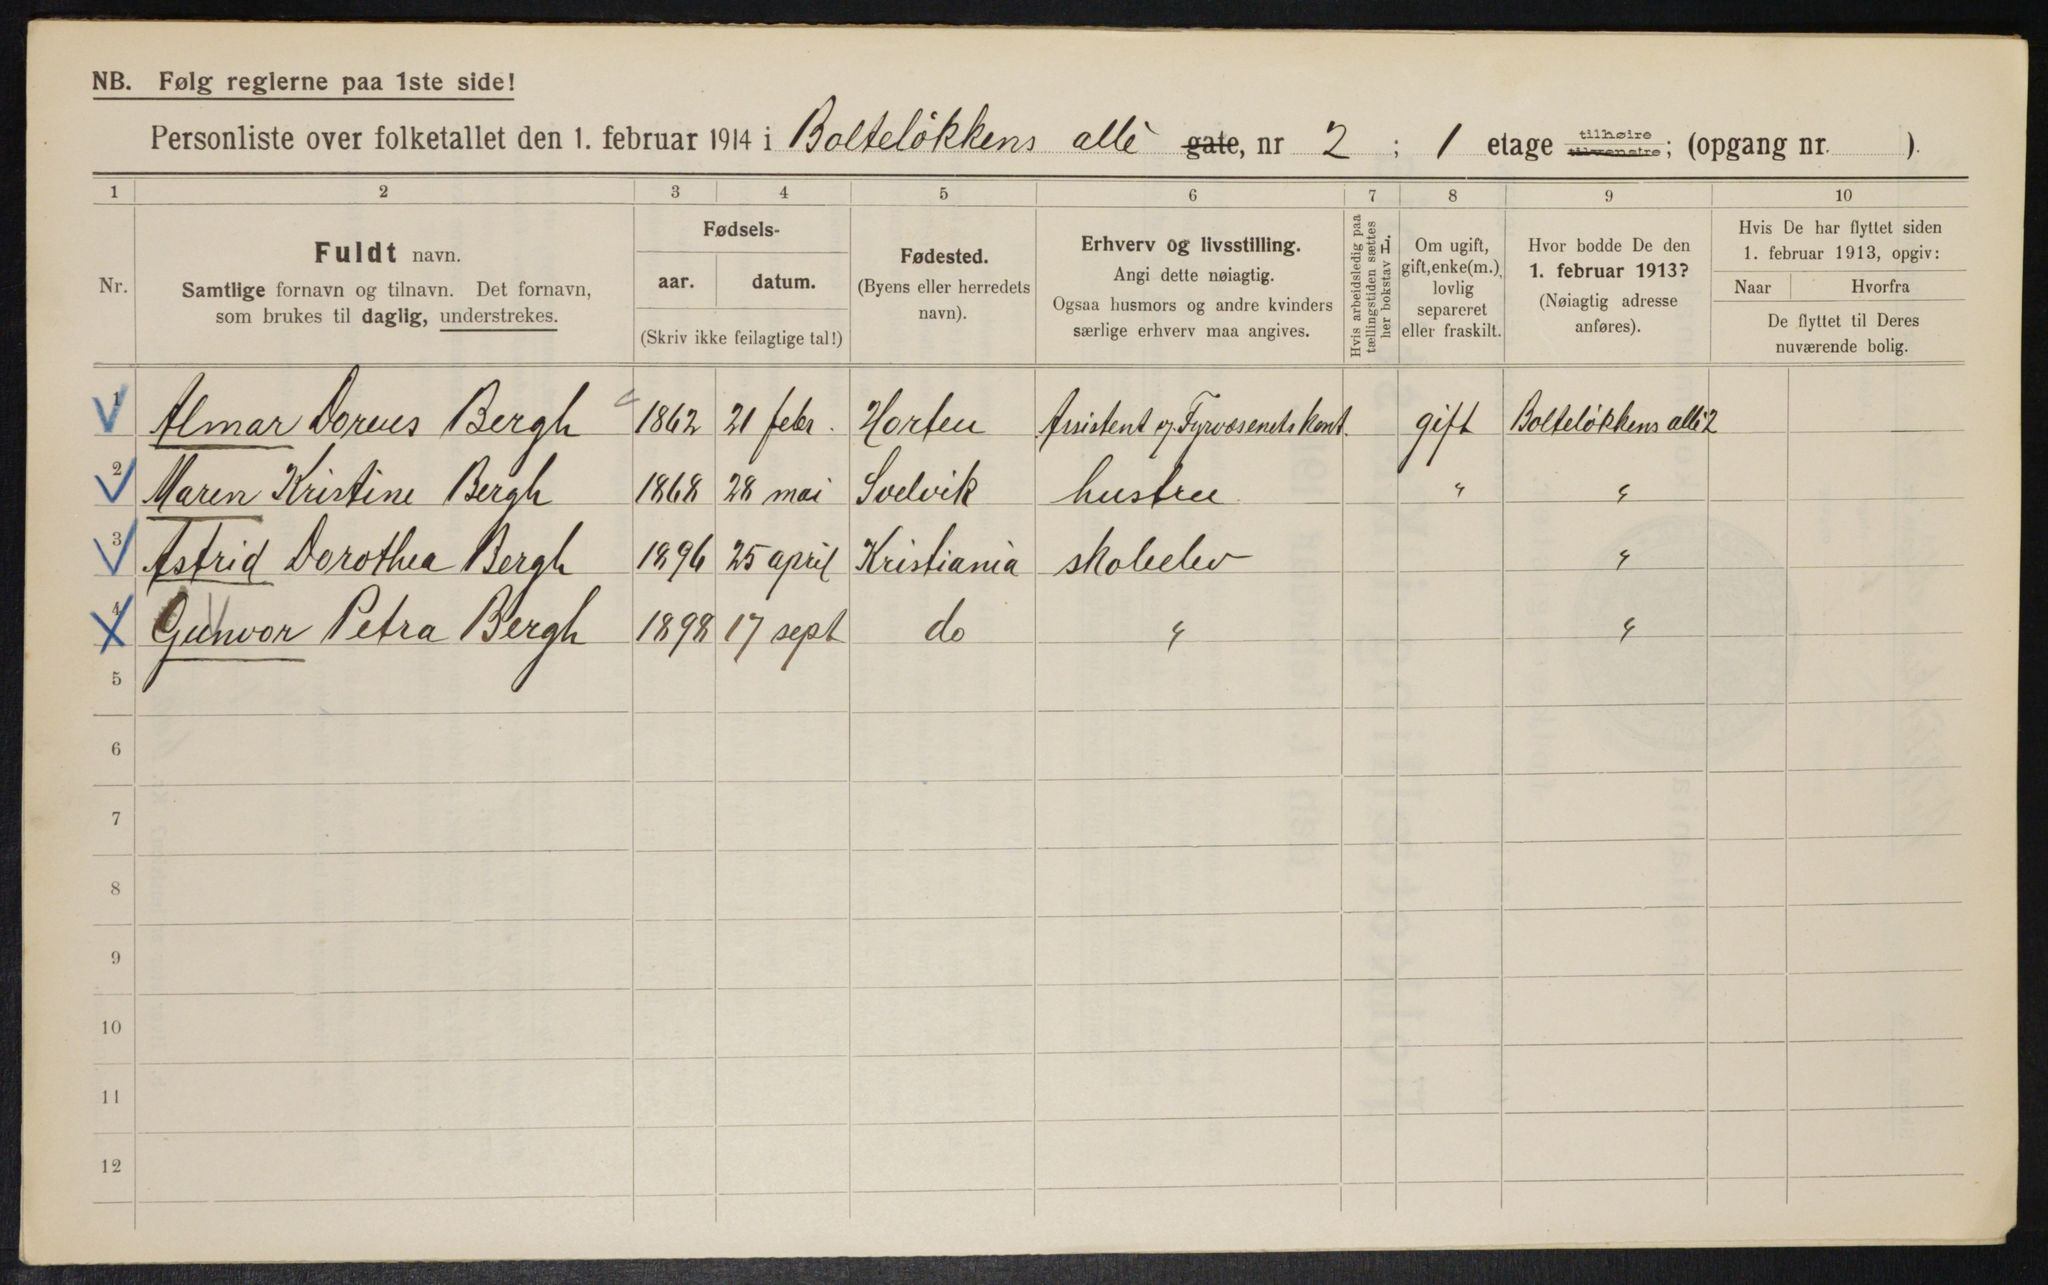 NB. Følg reglerne paa 1ste side!
Personliste over folketallet den 1. februar 1914 i Bolteløkkens allè gate, nr 2 ; 1 etage tilhøire tilvenstre; (opgang nr. ).
1 2 3 4 5 6 7 8 9 10
Nr.
Fuldt navn.
Samtlige fornavn og tilnavn. Det fornavn,
som brukes til daglig, understrekes.
Fødsels-
aar. datum.
(Skriv ikke feilagtige tal!)
Fødested.
(Byens eller herredets
navn).
Erhverv og livsstilling.
Angi dette nøiagtig.
Ogsaa husmors og andre kvinders
særlige erhverv maa angives.
Hvis arbeidsledig paa
tællingstiden sættes
her bokstav L.
Om ugift,
gift, enke(m.),
lovlig
separeret
eller fraskilt.
Hvor bodde De den
1. februar 1913?
(Nøiagtig adresse
anføres).
Hvis De har flyttet siden
1. februar 1913, opgiv:
Naar Hvorfra
De flyttet til Deres
nuværende bolig.
1 Almar Doreus Bergh 1862 21 febr. Horten Assistent v. Fyrvæsenets kont. gift Bolteløkkens allè 2
2 Maren Kristine Bergh 1868 28 mai Svelvik hustru " "
3 Astrid Dorothea Bergh 1896 25 april Kristiania skoleelev "
4 Gunvor Petra Bergh 1898 17 sept do " "
5
6
7
8
9
10
11
12